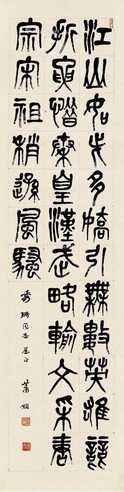 江山如此多嬌引無數英雄競
折腰惜秦皇漢武略輸文采唐
宗宋祖稍遜風騷
同志 蕭嫻